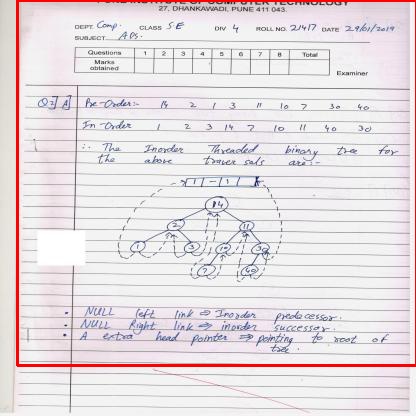 PUNE INSTITUTE OF COMPUTER TECHNOLOGY
27, DHANKAWADI, PUNE 411 043.
DEPT. Comp. CLASS S.E DIV 4 ROLL NO. 21417 DATE 29/01/2019
SUBJECT ADS.
Questions 1 2 3 4 5 6 7 8 Total
Marks obtained
Examiner
Q2] A] Pre-Order:- 14 2 1 3 11 10 7 30 40
In-Order 1 2 3 14 7 10 11 40 30
∴ The Inorder Threaded binary tree for
the above traversals are:-
14
2 11
1 3 10 30
7 40
• NULL left link ⇒ Inorder predecessor.
• NULL Right link ⇒ inorder successor.
• A extra head pointer ⇒ pointing to root of
tree.